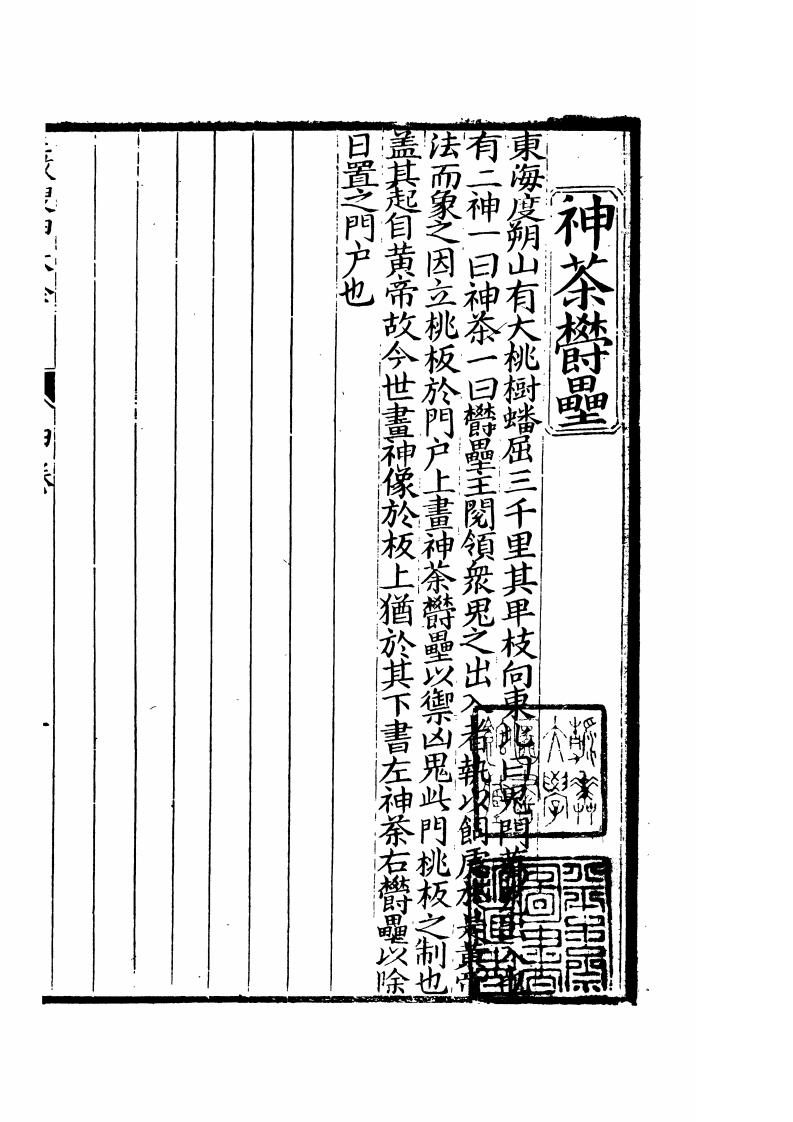 神荼欎壘
東海度朔山有大桃樹蟠屈三千里其卑枝向東北曰鬼門
有二神一曰神荼一曰欎壘主閱領衆鬼之出入者執以飼虎於是黃帝
法而象之因立桃板於門户上畫神荼欎壘以禦凶鬼此門桃板之制也
盖其起自黄帝故今世畫神像於板上猶於其下書左神荼右欎壘以除
日置之門户也
四卷